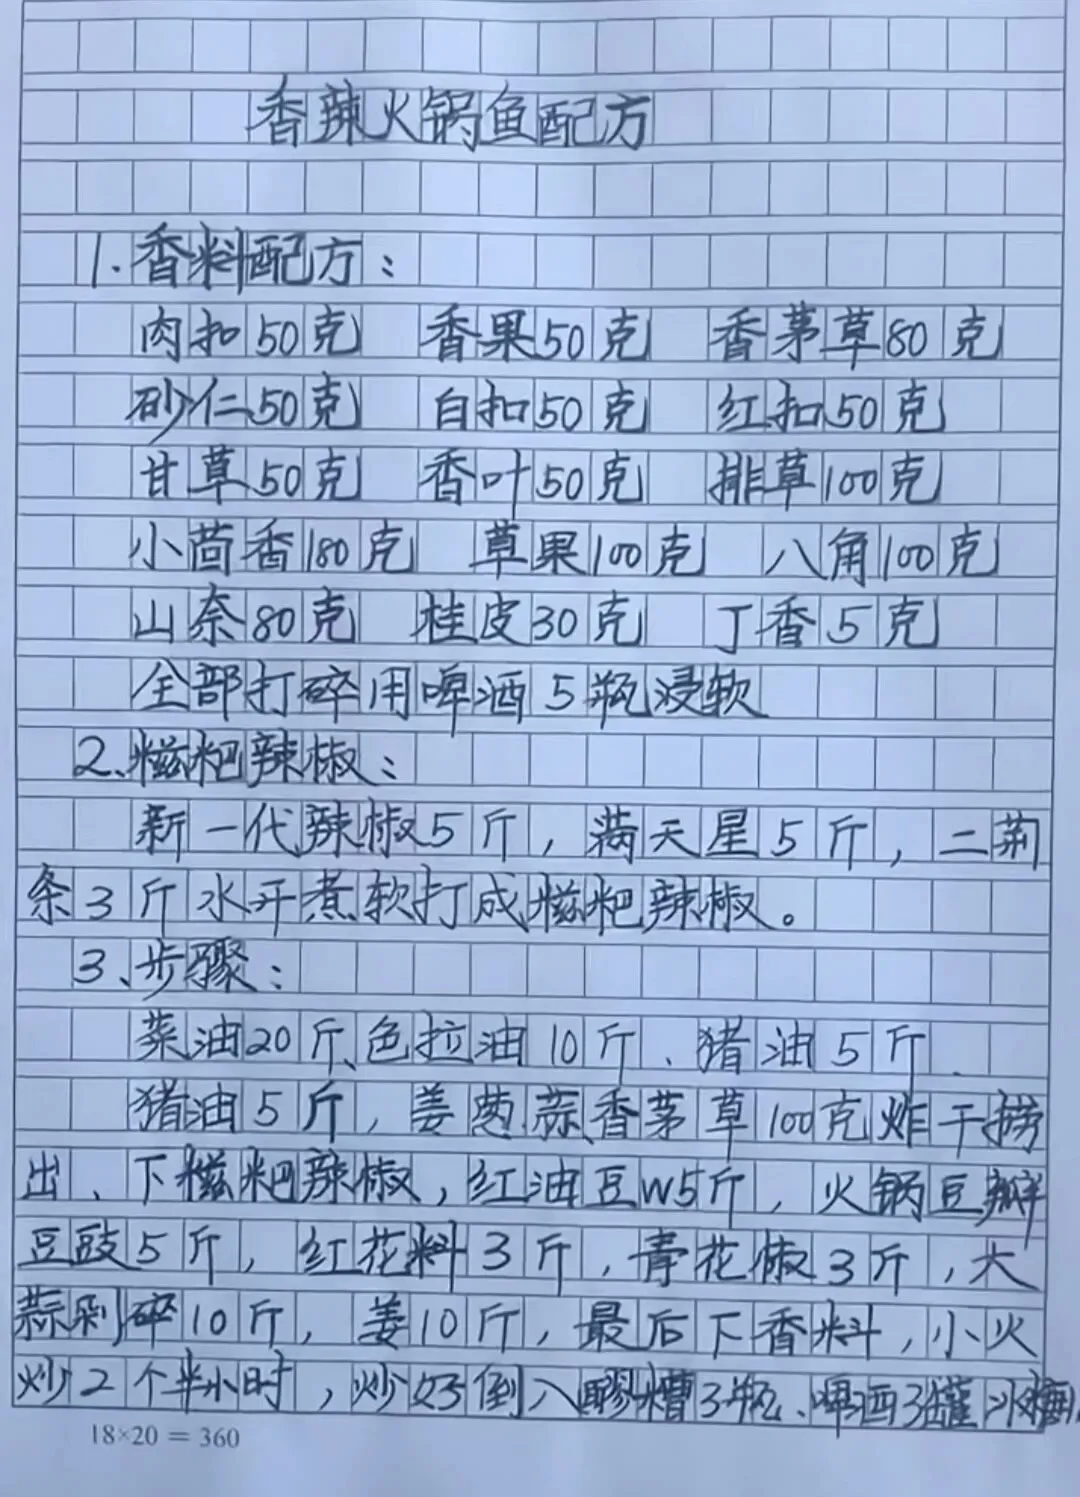 香辣火锅鱼配方
1.香料配方：
肉扣50克 香果50克 香茅草80克
砂仁50克 白扣50克 红扣50克
甘草50克 香叶50克 排草100克
小茴香180克 草果100克 八角100克
山奈80克 桂皮30克 丁香5克
全部打碎用啤酒5瓶浸软
2、糍粑辣椒：
新一代辣椒5斤，满天星5斤，二荆
条3斤水开煮软打成糍粑辣椒。
3、步骤：
菜油20斤、色拉油10斤、猪油5斤、
猪油5斤，姜葱、蒜、香茅草100克炸干捞
出、下糍粑辣椒，红油豆W5斤，火锅豆瓣
豆豉5斤，红花料3斤，青花椒3斤，大
蒜剁碎10斤，姜10斤，最后下香料，小火
炒2个半小时，炒好倒入醪糟3瓶、啤酒3罐
18×20＝360